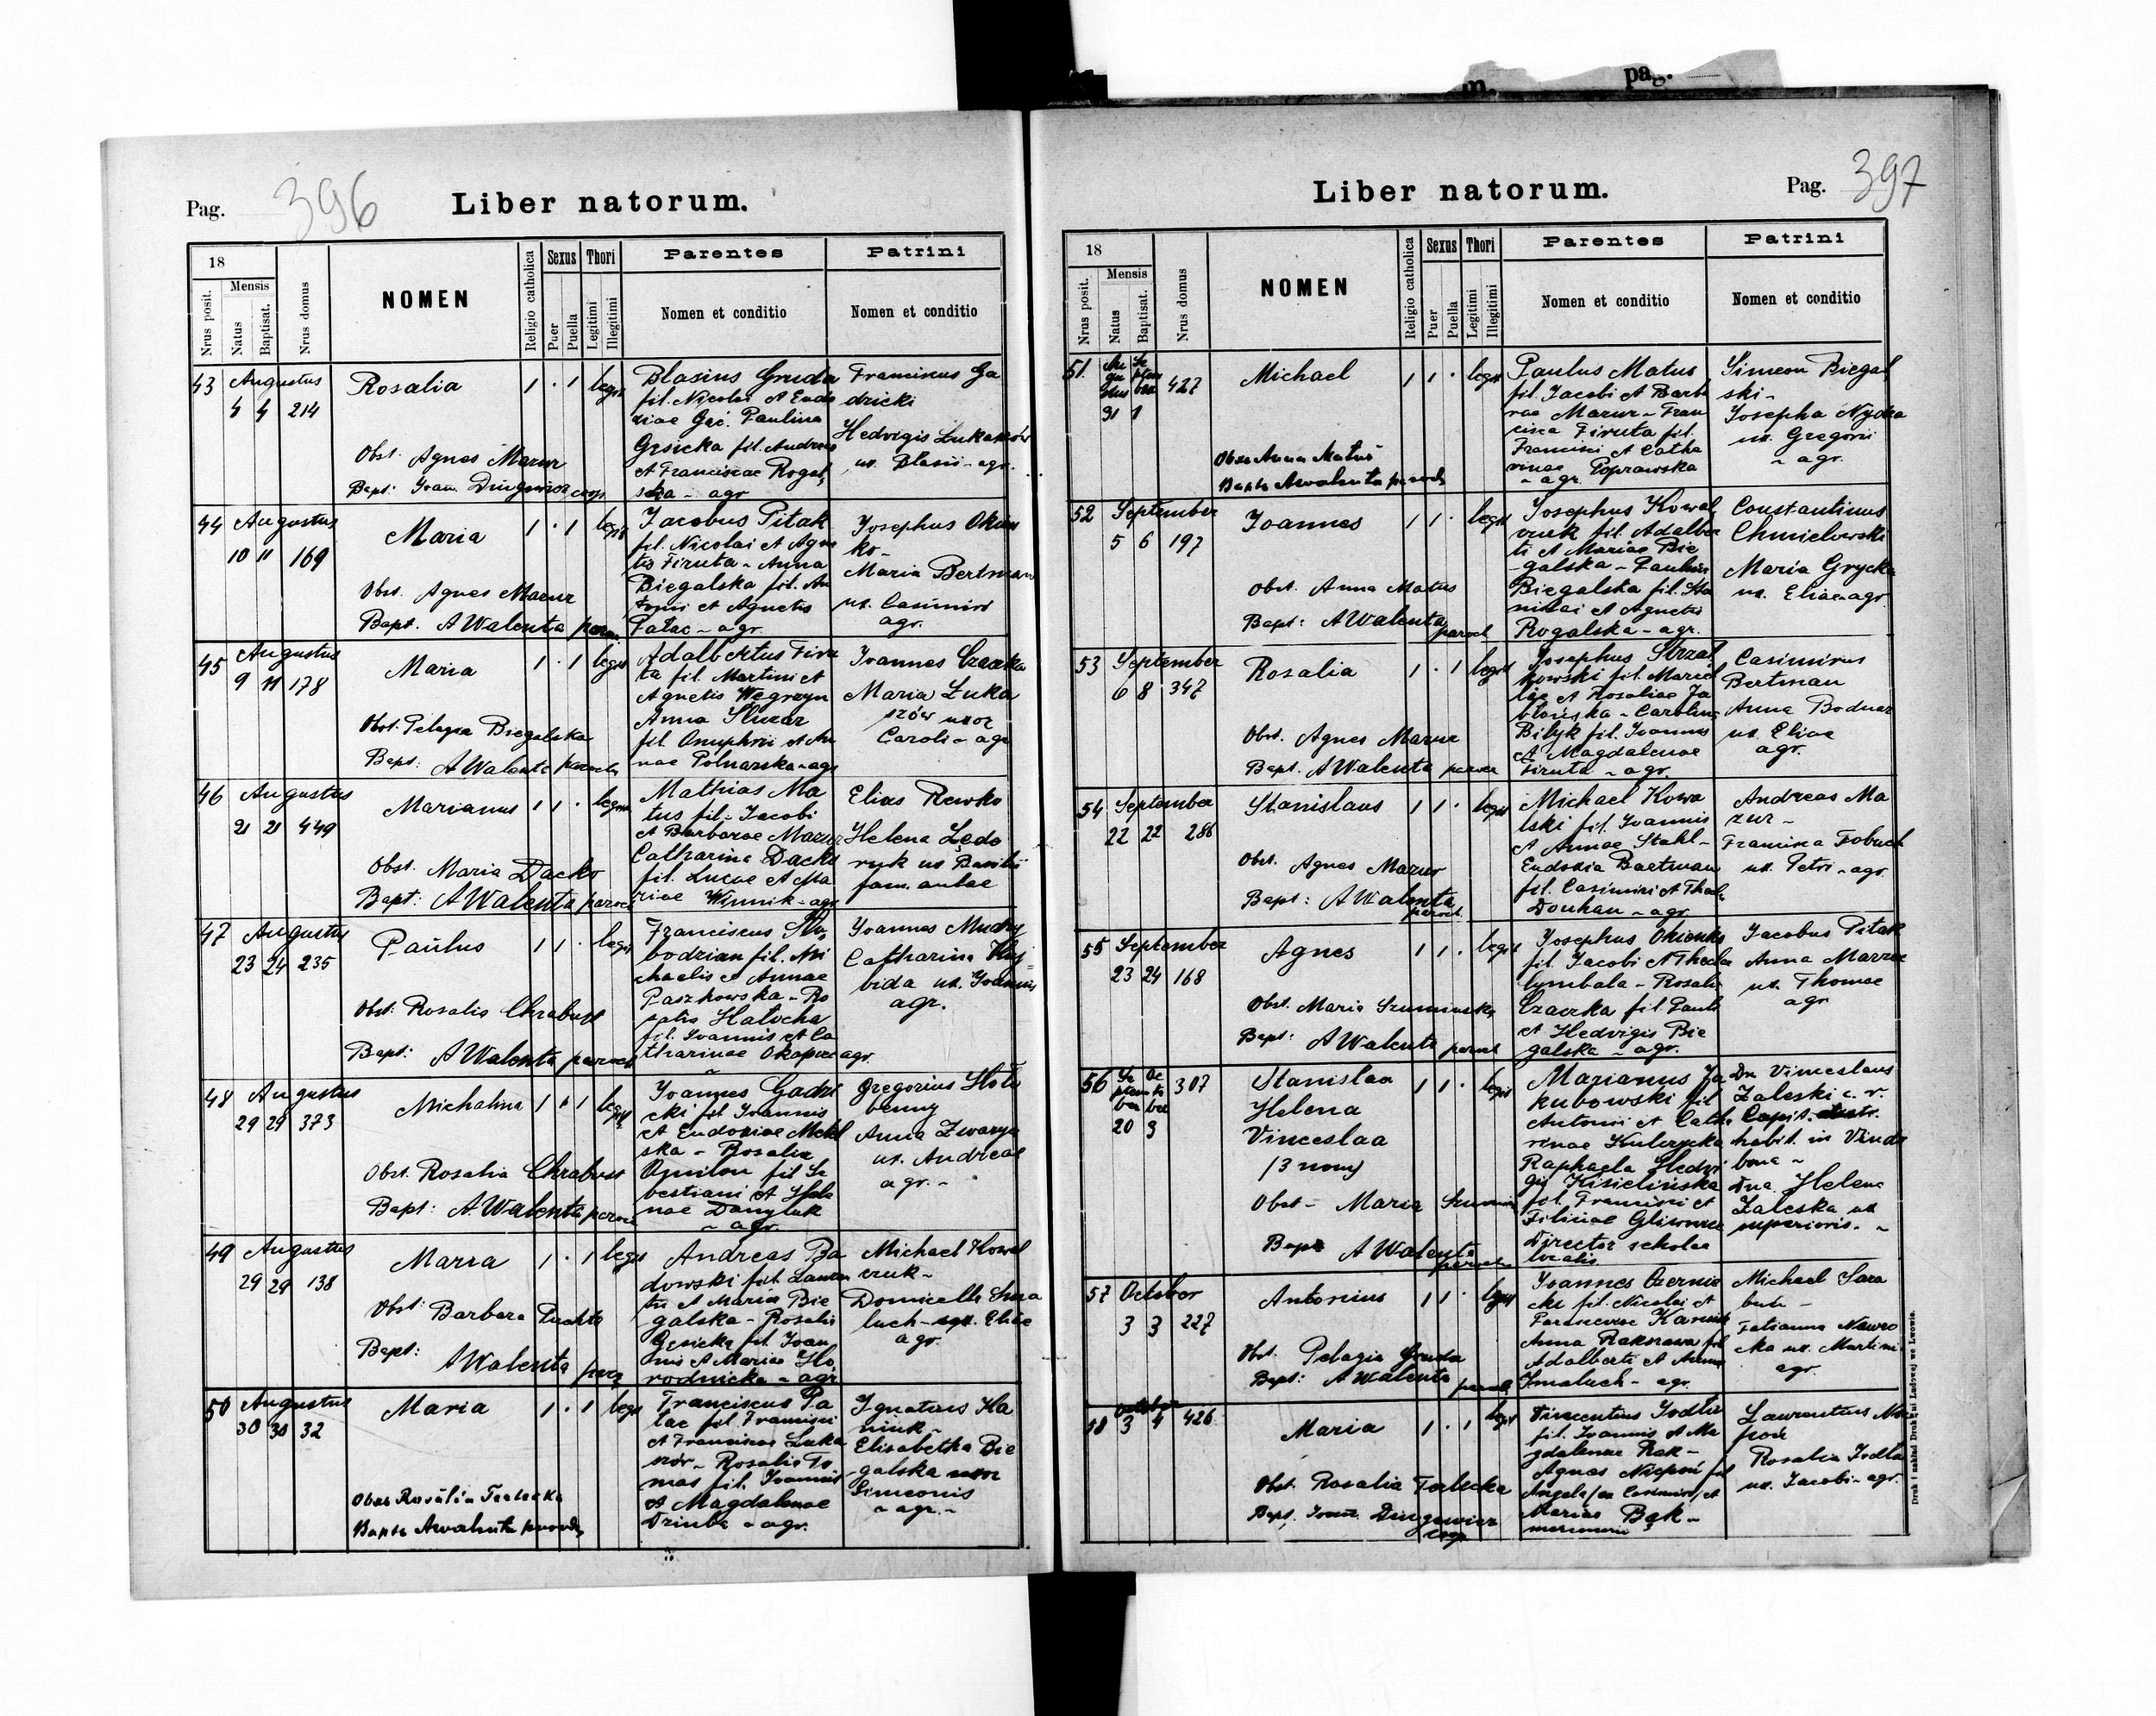 m. pag.
Pag. 396
Liber natorum.
18
Nrus posit.
Mensis
Natus
Baptisat.
Nrus domus
NOMEN
Religio catholica
Sexus
Puer
Puella
Thori
Legitimi
Illegitimi
Parentes
Nomen et conditio
Patrini
Nomen et conditio
43 Augustus
4 4 214
Rosalia
1 · 1
Obst. Agnes Mazur
Bapt:
Blasius Gruda
fil. Nicolai et Eudo
xiae Gąć. Paulina
Gęsicka fil. Andreae
et Franciscae Rogal
ska - agr
Franciscus Ga
dzicki
Hedvigis Łukaszów
ux. Blasii - agr.
44 Augustus
10 11 169
Maria
1 · 1
Obst. Agnes Mazur
Bapt. A Walenta
Jacobus Pitak
fil. Nicolai et Agne
tis Firuta - Anna
Biegalska fil. An
tonii et Agnetis
Palac - agr.
Josephus Okień
ko -
Maria Bertman
ux. Casimiri
agr.
45 Augustus
9 11 178
Maria
1 · 1
Obst. Pelagia Biegalska
Bapt: A Walenta
Adalbertus Firu
ta fil. Martini et
Agnetis Węgrzyn
Anna Śluzar
fil. Onuphrii et An
nae Polnarska - agr
Joannes Czaczka
Maria Łuka
szów uxor
Caroli - agr
46 Augustus
21 21 449
Marianus
1 1 ·
Obst. Maria Dacko
Bapt: A Walenta paroch
Mathias Ma
tus fil. Jacobi
et Barbarae Mazur
Catharina Dacko
fil. Lucae et Ma
riae Winnik - agr
Elias Rewko
Helena Lędo
ruk ux Basilii
fam. aulae
47 Augustus
23 24 235
Paulus
1 1 ·
Obst: Rosalia Chrabust
Bapt: A Walenta paroch
Franciscus Sło
bodzian fil. Mi
chaelis et Annae
Paszkowska - Ro
salia Hałucha
fil. Joannis et Ca
tharinae agr.
Joannes Mudry
Catharina
bida ux. Joannis
agr.
48 Augustus
29 29 373
Michalina
1 · 1
Obst. Rosalia Chrabust
Bapt: A. Walenta
Joannes Gadzi
cki fil Joannis
et Eudoxiae
ska - Rosalia
fil Se
bestiani et Hele
nae Danyluk
- agr.
Gregorius Hoło
benny
Anna Zwarya
ux. Andreae
agr. -
49 Augustus
29 29 138
Maria
1 · 1
Obst: Barbara
Bapt: A Walenta
Andreas Ba
dowski fil. Lauren
tii et Maria Bie
galska - Rosalia
Gęsicka fil. Joan
nis et Mariae Ho
rodnicka - agr
Michael Kowal
czuk -
Domicella Sma
luch - Eliae
agr.
50 Augustus
30 30 32
Maria
1 · 1
Obst Rosalia
Bapt A Walenta
Franciscus Pa
lac fil Francisci
et Franciscae Łuka
szów - Rosalia To
mas fil. Joannis
et Magdalenae
Dziuba - agr.
Ignatius Ha
niuk -
Elisabetha Bie
galska uxor
Simeonis
- agr. -
Liber natorum.
Pag. 397
18
Nrus posit.
Mensis
Natus
Baptisat.
Nrus domus
NOMEN
Religio catholica
Sexus
Puer
Puella
Thori
Legitimi
Illegitimi
Parentes
Nomen et conditio
Patrini
Nomen et conditio
51. Au
gu
stus
31
Se
ptem
ber
1
427
Michael
1 1 ·
Obst Anna Matus
Bapt A Walenta paroch
Paulus Matus
fil. Jacobi et Barba
rae Mazur - Fran
cisca Firuta fil.
Francisci et Catha
rinae Poprawska
- agr.
Simeon Biegal
ski -
Josepha
ux. Gregorii
- agr.
52 September
5 6 197
Joannes
1 1 ·
Obst. Anna Matus
Bapt: A Walenta
paroch
Josephus Kowal
czuk fil. Adalber
ti et Mariae Bie
galska - Paulina
Biegalska fil. Sta
nislai et Agnetis
Rogalska - agr.
Constantinus
Chmielowski
Maria Grycka
ux. Eliae - agr.
53 September
6 8 347
Rosalia
1 · 1
Obst. Agnes Mazur
Bapt. A Walenta
Josephus Strzał
kowski fil.
et Rosaliae Ja
błońska - Carolina
Bilyk fil. Joannis
et Magdalenae
Firuta - agr.
Casimirus
Bertman
Anna Bodnar
ux. Eliae
agr.
54 September
22 22 286
Stanislaus
1 1 ·
Obst. Agnes Mazur
Bapt: A Walenta
paroch
Michael Kowa
lski fil. Joannis
et Annae Stahl -
Eudoxia Baetman
fil. Casimiri et Thecl
Douhan - agr.
Andreas Ma
zur -
Francisca
ux. Petri - agr.
55 September
23 24 168
Agnes
1 1 ·
Obst. Maria Szumińska
Bapt: A Walenta paroch
Josephus Okieńko
fil. Jacobi et Thecla
Cymbala - Rosalia
Czaczka fil. Pauli
et Hedvigis Bie
galska - agr.
Jacobus Pitak
Anna Mazur
ux. Thomae
agr
56 Se
ptem
ber
20
Oc
to
ber
3
307
Stanislaa
Helena
Vinceslaa
(3 nom)
1 1 ·
Obst - Maria
Bapt A Walenta
paroch
Marianus Ja
kubowski fil
Antonii et Catha
rinae Kulczycka
Raphaela Hedvi
gis Kisielińska
fil. Francisci et
Feliciae
Director scholae
localis
Dn. Vinceslaus
Zaleski c. r.
Capit.
habit. in Vindo
bona -
Dna. Helena
Zaleska ux
superioris. -
57 October
3 3 227
Antonius
1 1 ·
Obst. Pelagia Gruda
Bapt: A Walenta
Joannes Czernie
cki fil. Nicolai et
Parascevae
Anna fil
Adalberti et Annae
Smaluch - agr.
Michael Sara
buda -
Tatianna Nawro
cka ux. Martini
agr.
58 October
3 4 426
Maria
1 · 1
Obst. Rosalia
Bapt. Joan.
Vincentius Jodło
fil. Joannis et Ma
gdalenae Rak -
Agnes Niepoń fil
et
Mariae Bąk -
Laurentius
Rosalia Jodło
ux. Jacobi - agr.
Druk i nakład Drukarni Ludowej we Lwowie.